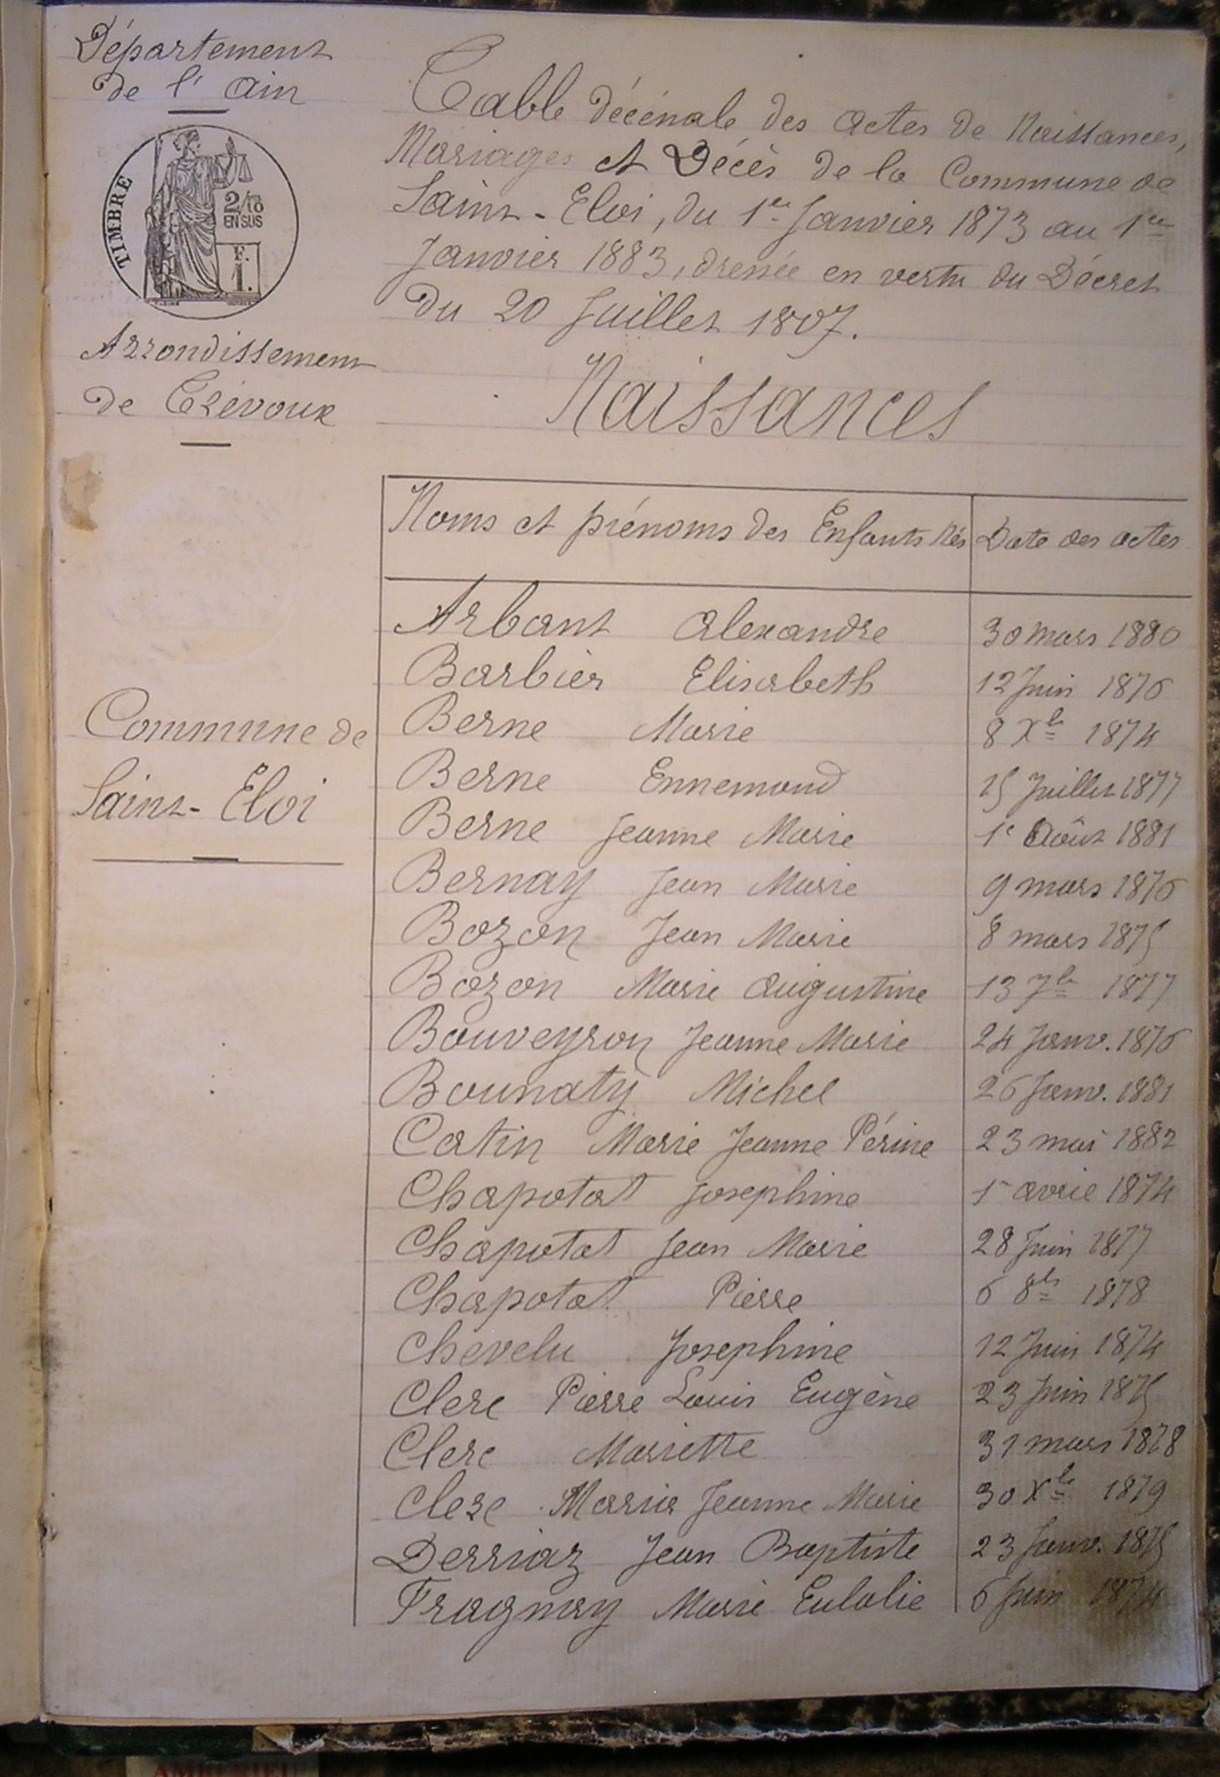 Département
de l' Ain
TIMBRE
2/10
EN SUS
F.
1.
Arrondissement
de Trévoux
Commune de
Saint-Eloi
Table décénale des actes de Naissances,
Mariages et Décès de la Commune de
Saint-Eloi, du 1er Janvier 1873 au 1er
Janvier 1883, dressée en vertu du Décret
du 20 Juillet 1807.
Naissances
Noms et prénoms des Enfants Nés Date des actes
Arbant Alexandre 30 mars 1880
Barbier Elisabeth 12 Juin 1876
Berne Marie 8 Xbre 1874
Berne Ennemond 15 Juillet 1877
Berne Jeanne Marie 1er Août 1881
Bernay Jean Marie 9 mars 1876
Bozon Jean Marie 8 mars 1875
Bozon Marie Augustine 13 7bre 1877
Bouveyron Jeanne Marie 24 Janv. 1876
Bounaty Michel 26 Janv. 1881
Catin Marie Jeanne Périne 23 mai 1882
Chapotat Josephine 1er avril 1874
Chapotat Jean Marie 28 Juin 1877
Chapotat Pierre 6 8bre 1878
Chevelu Josephine 12 Juin 1874
Clerc Pierre Louis Eugène 23 Juin 1875
Clerc Mariette 31 mars 1878
Clerc Maria Jeanne Marie 30 Xbre 1879
Derriaz Jean Baptiste 23 Janv. 1875
Fragnay Marie Eulalie 6 Juin 1874